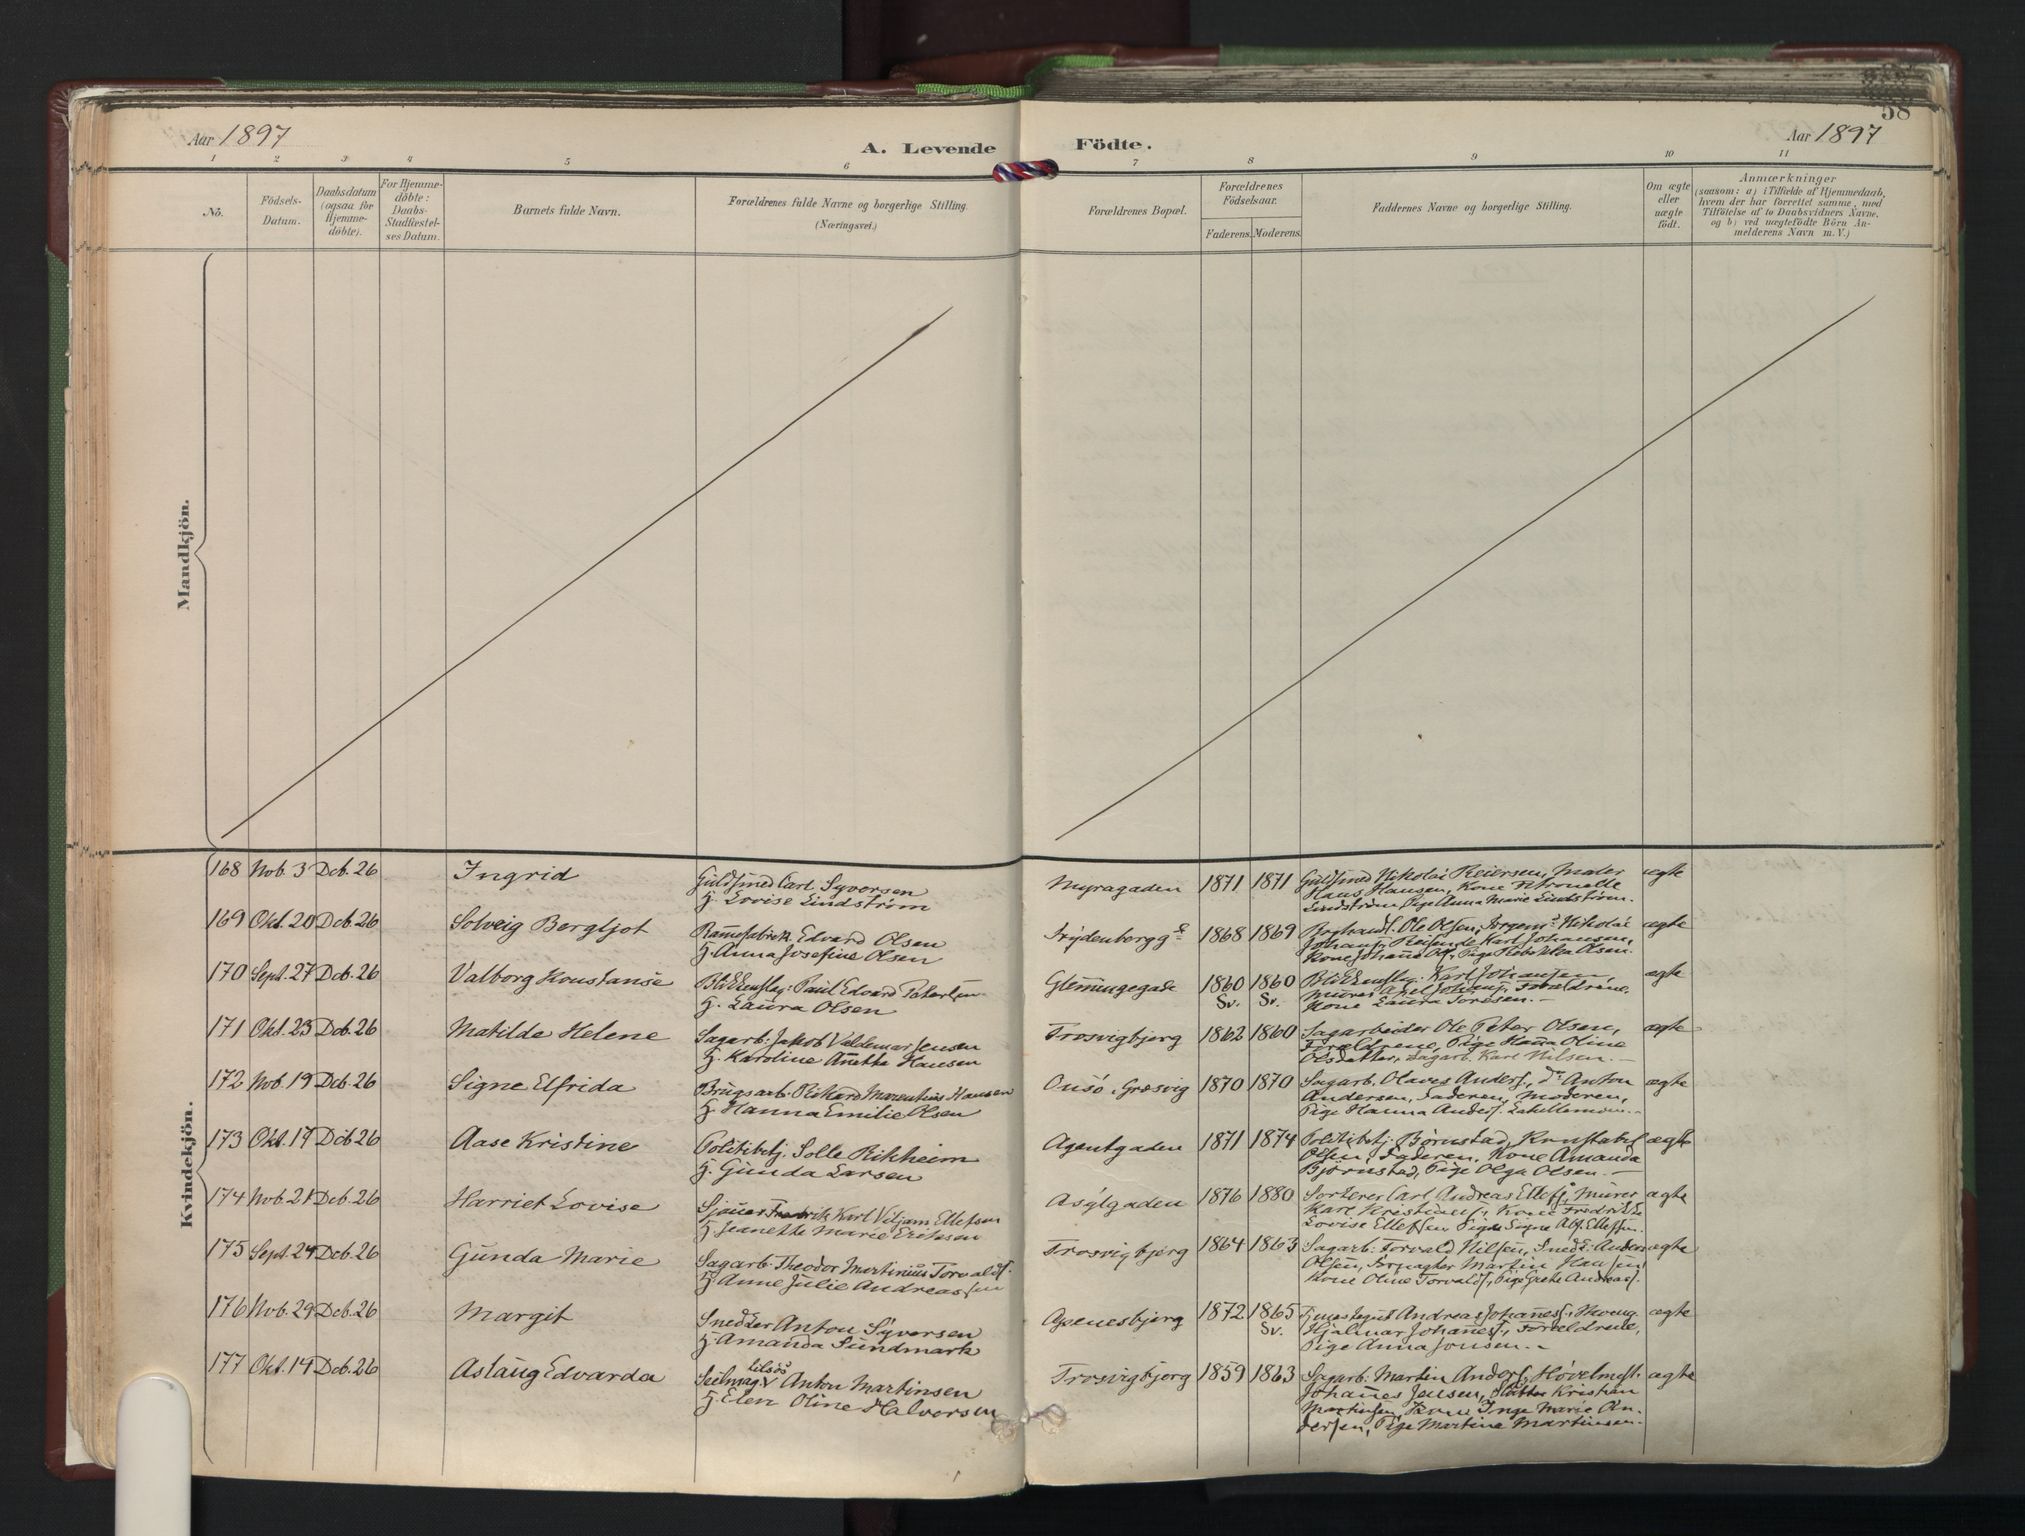 58
Aar 1897
A. Levende
Födte.
Aar 1897
1 2 3 4 5 6 7 8 9 10 11
Nô.
Födsels-
Datum.
Daabsdatum
(ogsaa for
Hjemme-
döbte).
For Hjemme-
döbte:
Daabs-
Stadfæstel-
ses Datum.
Barnets fulde Navn.
Forældrenes fulde Navne og borgerlige Stilling.
(Næringsvei.)
Forældrenes Bopæl.
Forældrenes
Födselsaar.
Faderens. Moderens.
Faddernes Navne og borgerlige Stilling.
Om ægte
eller
uægte
födt.
Anmærkninger
(saasom: a) i Tilfælde af Hjemmedaab,
hvem der har forrettet samme, med
Tilföielse af to Daabsvidners Navne,
og b) ved uægtefödte Börn An-
melderens Navn m. V.)
Mandkjön.
Kvindekjön.
168 Nob. 3 Dcb. 26 Ingrid
Guldsmed Carl Syvorsen
H. Lovise Lindström
Myragaden 1871 1871
Guldsmed Nikolai Reiersen, Maler
Hans Hansen, Kone Petronelle
Lindström, Pige Anna Marie Lindström.
ægte
169 Okt. 20 Dcb. 26 Solveig Bergljot
Edvard Olsen
H. Anna Josefine Olsen
1868 1869
Ole Olsen, Nikolai
Johans, Reisende Karl Johansen,
Olsen.
ægte
170 Sept. 27 Dcb. 26 Valborg Konstanse
Blikkenslag: Paul Edvard Petersen
H. Laura Olsen
Glemmegade 1860 Sv. 1860 Sv.
Blikkenslag: Karl Johansen,
Murer Axel Johans, Forældrene,
Kone Laura
ægte
171 Okt. 23 Dcb. 26 Matilde Helene
Sagarb: Jakob Valdemar Jensen
H. Karoline Anette Hansen
Trosvigbjerg 1862 1860
Sagarbeider Ole Peter Olsen,
Forældrene, Pige Hanna Oline
Olsdatter, Sagarb. Karl Nilsen.
ægte
172 Nob. 19 Dcb. 26 Signe Elfrida
Brugsarb: Rikard Marentius Hansen
H. Hanna Emilie Olsen
Onsö, Græsvig 1870 1870
Sagarb. Olaves Anders, do Anton
Andersen, Faderen, Moderen,
Pige Hanna Anders.
ægte
173 Okt. 17 Dcb 26 Aase Kristine
Politibetj. Solle Rikheim
H. Gunda Larsen
Agentgaden 1871 1874
Politibetj. Björnstad, Konstabel
Olsen, Faderen, Kone Amanda
Björnstad, Pige Olga Olsen.
ægte
174 Nob. 21 Dcb. 26 Harriet Lovise
Sjöuer Fredrik Karl Viljam Ellefsen
H. Jeanette Marie Eriksen
Asylgaden 1876 1880
Sorterer Carl Andreas Ellefs, Murer
Karl Kristians, Kone Fredrikke
Lovise Ellefsen, Pige Signe Ellefsen.
ægte
175 Sept. 24 Dcb. 26 Gunda Marie
Sagarb: Theodor Martinius Torvalds.
H. Anne Julie Andreassen
Trosvigbjerg 1864 1863
Sagarb: Torvald Nilsen, Snedk: Anders
Olsen, Martin Hansen
Kone Oline Torvalds, Pige Grete Andreas.
ægte
176 Nob. 29 Dcb. 26 Margit
Snedker Anton Syversen
H. Amanda Sundmark
Apenesbjerg 1872 1865 Sv.
Andreas Johannes,
Hjalmar Johannes, Forældrene,
Pige Anna Jonsen.
ægte
177 Okt. 14 Dcb. 26 Aslaug Edvarda
Seilmag: Anton Martinsen
H. Elen Oline Halvorsen
Trosvigbjerg 1859 1863
Sagarb: Martin Anders, Hövelmest.
Johannes Jensen, Kristian
Martinsen, Inge Marie An-
dersen, Pige Martine Martinsen.
ægte